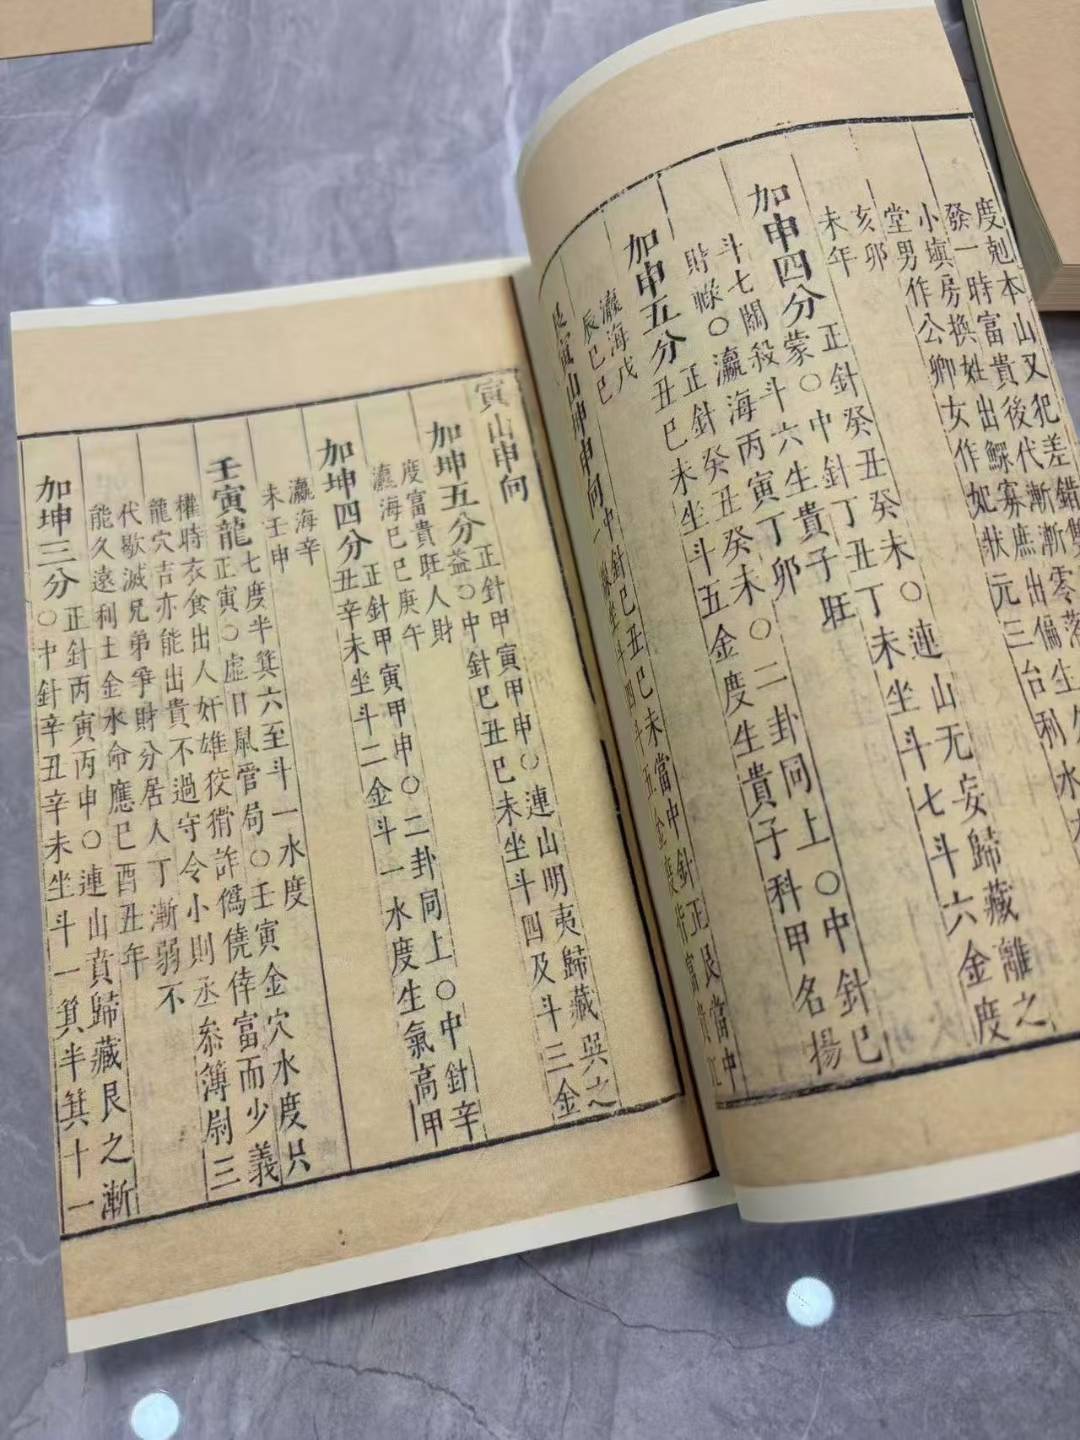 度剋本山又犯差錯雙
發一時富貴後代漸漸零落
小塡房換姓出鰥寡庶出偏生
堂男作公卿女作妃狀元三台利
亥卯
未年
加申四分
正針癸丑癸未○連山无妄歸藏離之
蒙○中針丁丑丁未坐斗七斗六金度
斗七關殺斗六生貴子旺
財祿○瀛海丙寅丁卯
加申五分
正針癸丑癸未○二卦同上○中針巳
丑巳未坐斗五金度生貴子科甲名揚
瀛海戊
辰己巳
寅山坤申向
寅山申向
加坤五分
正針甲寅甲申○連山明夷歸藏巽之
益○中針巳丑巳未坐斗四及斗三金
度富貴旺人財
瀛海己巳庚午
加坤四分
正針甲寅甲申○二卦同上○中針辛
丑辛未坐斗二金斗一水度生氣高甲
瀛海辛
未壬申
壬寅龍
七度半箕六至斗一水度
正寅○虛日鼠管局○壬寅金穴水度只
權時衣食出人奸雄狡猾詐僞僥倖富而少義
龍穴吉亦能出貴不過守令小則丞叅簿尉三
代歇滅兄弟爭財分居人丁漸弱不
能久遠利土金水命應巳酉丑年
加坤三分
正針丙寅丙申○連山賁歸藏艮之漸
○中針辛丑辛未坐斗一箕半箕十一